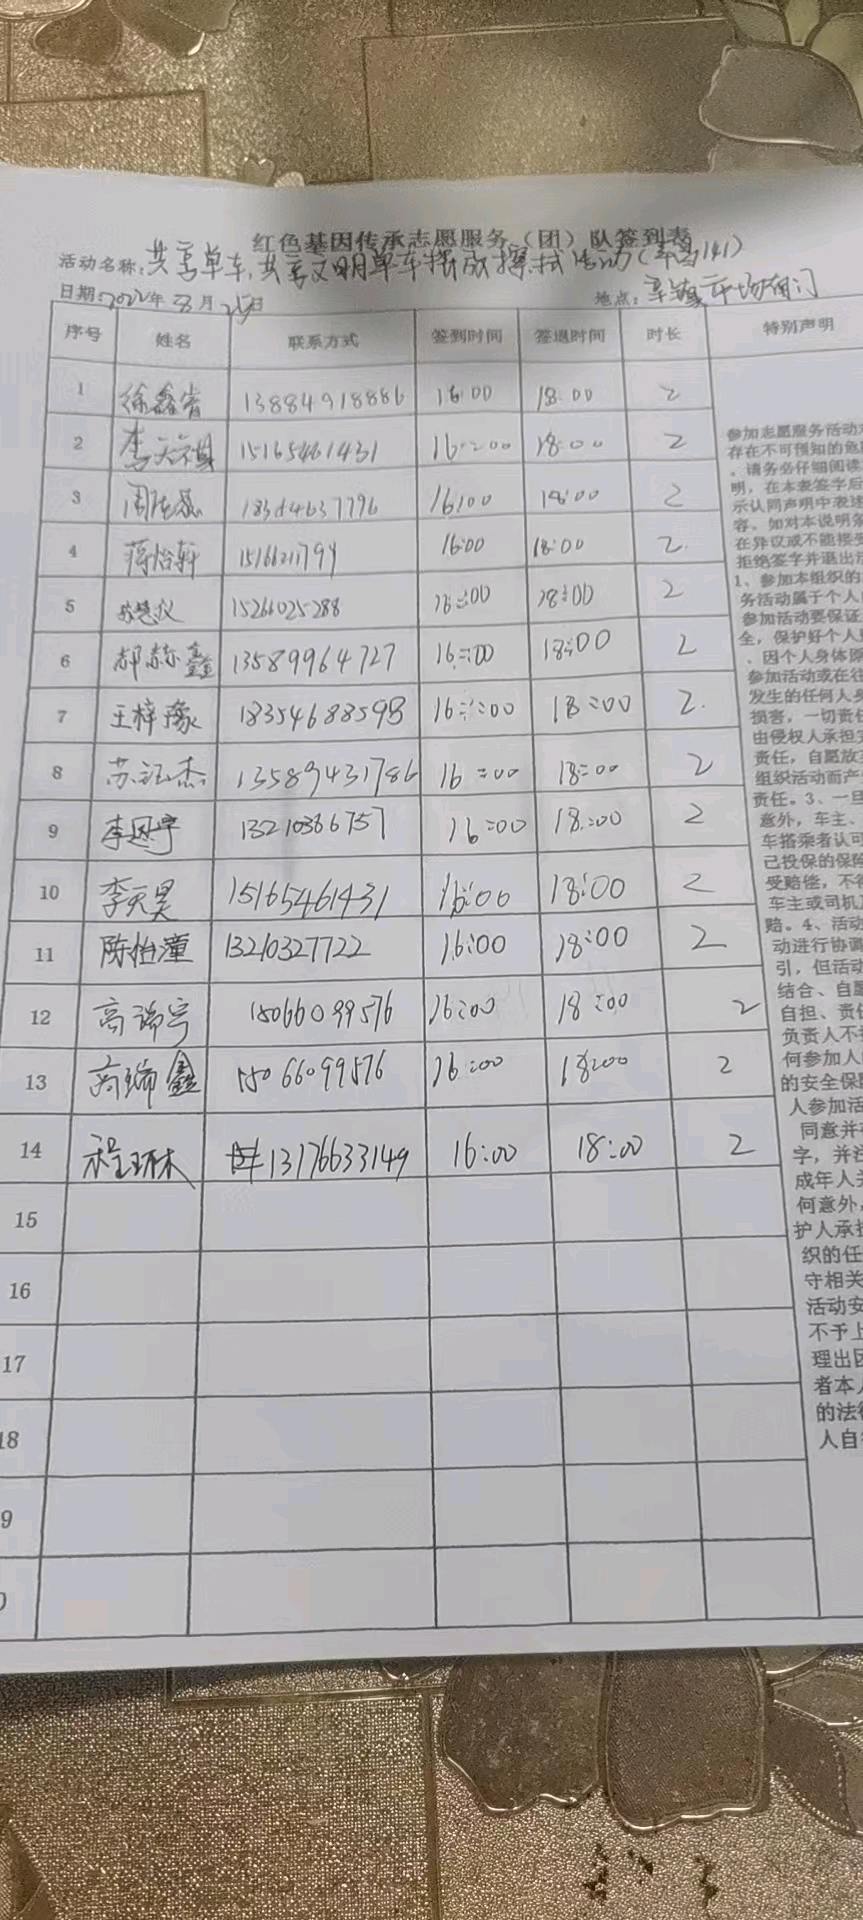 红色基因传承志愿服务（团）队签到表
活动名称：共享单车，共享文明单车摆放擦拭活动（141）
日期：2022年8月25日 地点：市场南门
序号 姓名 联系方式 签到时间 签退时间 时长 特别声明
1 徐鑫 13884918886 16:00 18:00 2
2 李天祺 15165461431 16:00 18:00 2
3 周 16:00 18:00 2
4 蒋怡轩 16:00 18:00 2
5 15266025288 16:00 18:00 2
6 郝赫鑫 13589964727 16:00 18:00 2
7 王梓豫 18354688598 16:00 18:00 2
8 苏杰 13589431786 16:00 18:00 2
9 李恩宇 13210386757 16:00 18:00 2
10 李天昊 15165461431 16:00 18:00 2
11 陈怡潼 13210327722 16:00 18:00 2
12 高瑞宇 15066099576 16:00 18:00 2
13 高瑞鑫 15066099576 16:00 18:00 2
14 程琳 13176633149 16:00 18:00 2
15
16
17
18
9
0
参加志愿服务活动
存在不可预知的危
。请务必仔细阅读
明，在本表签字后
示认同声明中表述
容。如对本说明条
在异议或不能接受
拒绝签字并退出活
1、参加本组织的
务活动属于个人
参加活动要保证
全，保护好个人
．因个人身体原
参加活动或在往
发生的任何人身
损害，一切责任
由侵权人承担
责任，自愿放弃
组织活动而产
责任。3、一旦
意外，车主、
车搭乘者认可
己投保的保险
受赔偿，不得
车主或司机
赔。4、活动
动进行协调
引，但活动
结合、自愿
自担、责任
负责人不
何参加人
的安全保
人参加活
同意并
字，并
成年人
何意外，
护人承担
织的任
守相关
活动安
不予上
理出
者本人
的法律
人自